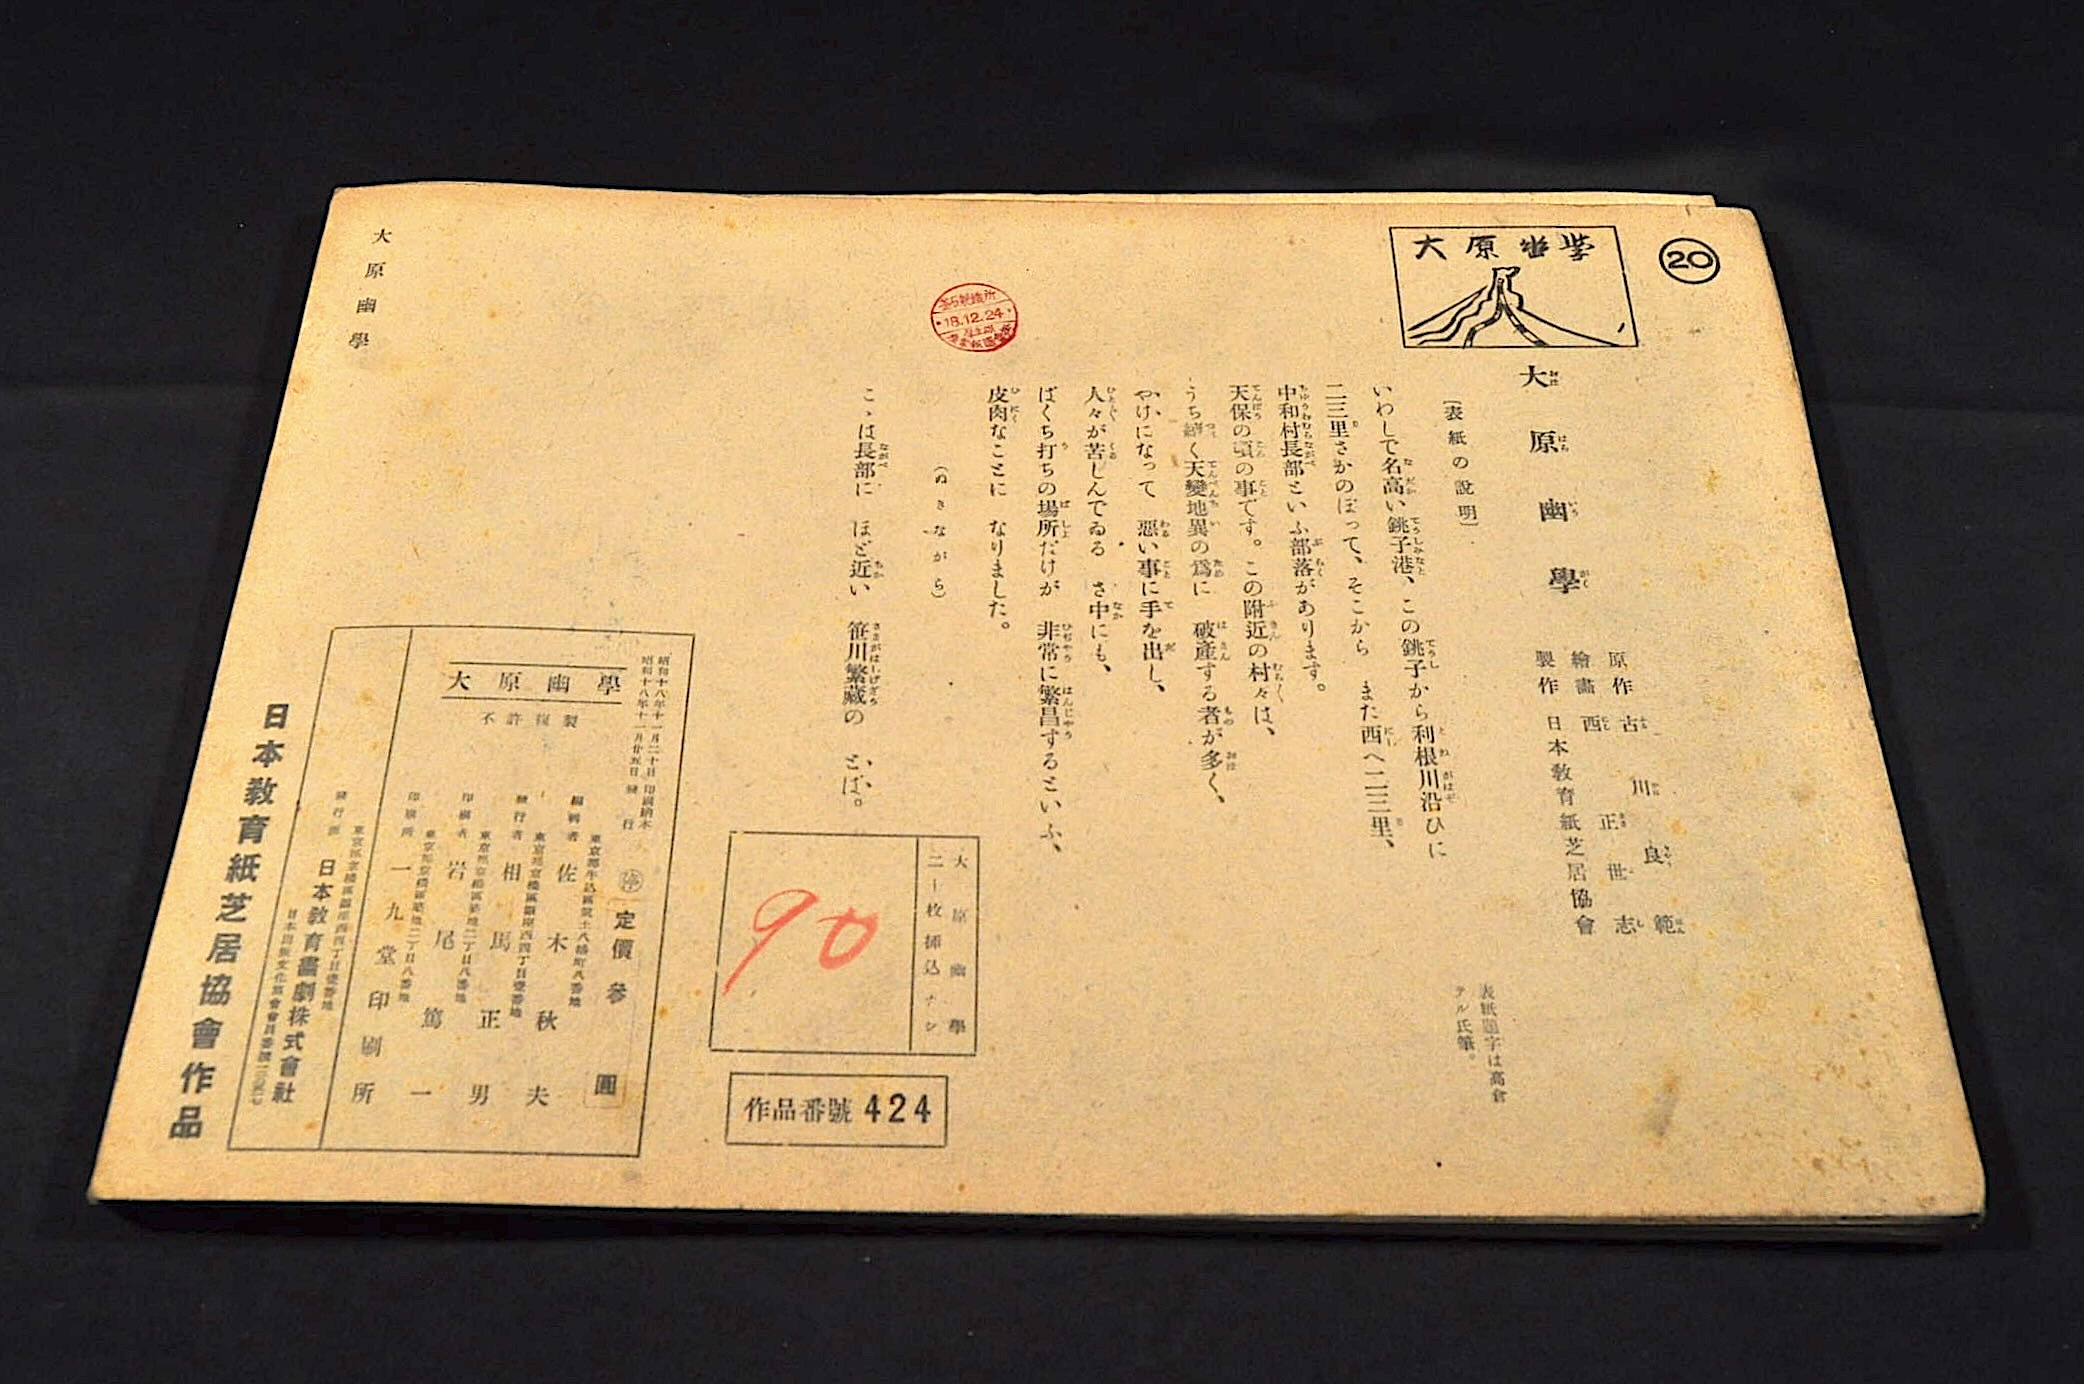 ⑳
大原幽學
大原幽學
原作 古川良範
繪畫 西正世志
製作 日本教育紙芝居協會
表紙題字は高倉
テル氏筆。
〔表紙の説明〕
いわしで名高い銚子港、この銚子から利根川沿ひに
二三里さかのぼって、そこから また西へ二三里、
中和村長部といふ部落があります。
天保の頃の事です。この附近の村々は、
うち續く天變地異の爲に 破産する者が多く、
やけになって 惡い事に手を出し、
人々が苦しんでゐる さ中にも、
ばくち打ちの場所だけが 非常に繁昌するといふ、
皮肉なことに なりました。
(ぬきながら)
こゝは長部に ほど近い 笹川繁藏の とば。
18.12.24
大原幽學
二十枚揷込ナシ
90
作品番號 424
昭和十八年十一月二十日 印刷納本
昭和十八年十一月廿五日 發行
停 定價參圓
大原幽學
不許複製
編輯者 佐木秋夫
東京都京橋區銀座西四丁目壹番地
發行者 相馬正男
東京都京橋區築地二丁目八番地
印刷者 岩尾篤一
東京都京橋區築地二丁目八番地
印刷所 一九堂印刷所
東京都京橋區銀座西四丁目壹番地
發行所 日本教育畫劇株式會社
日本教育紙芝居協會作品
大原幽學